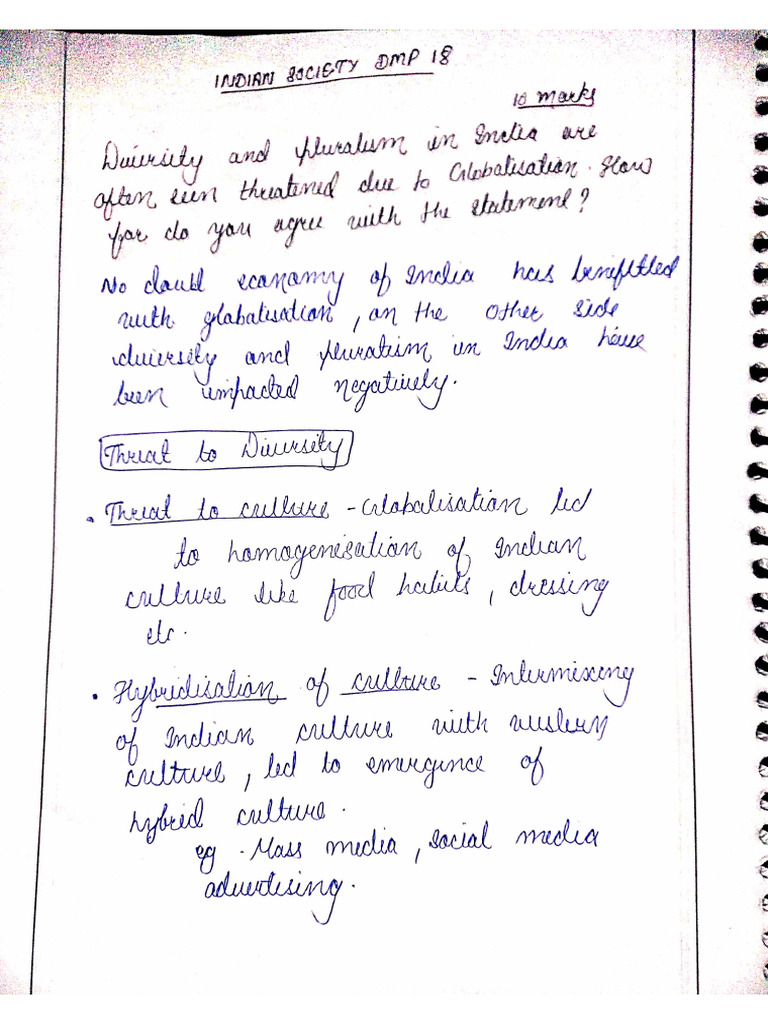 INDIAN SOCIETY DMP 18
10 marks
Diversity and Pluralism in India are
often seen threatened due to Globalisation. How
far do you agree with the statement?
No doubt economy of India has benefitted
with globalisation, on the other side
diversity and pluralism in India have
been impacted negatively.
Threat to Diversity
• Threat to culture - Globalisation led
to homogenisation of Indian
culture like food habits, dressing
etc.
• Hybridisation of culture - Intermixing
of Indian culture with western
culture, led to emergence of
hybrid culture.
eg. Mass media, social media
advertising.